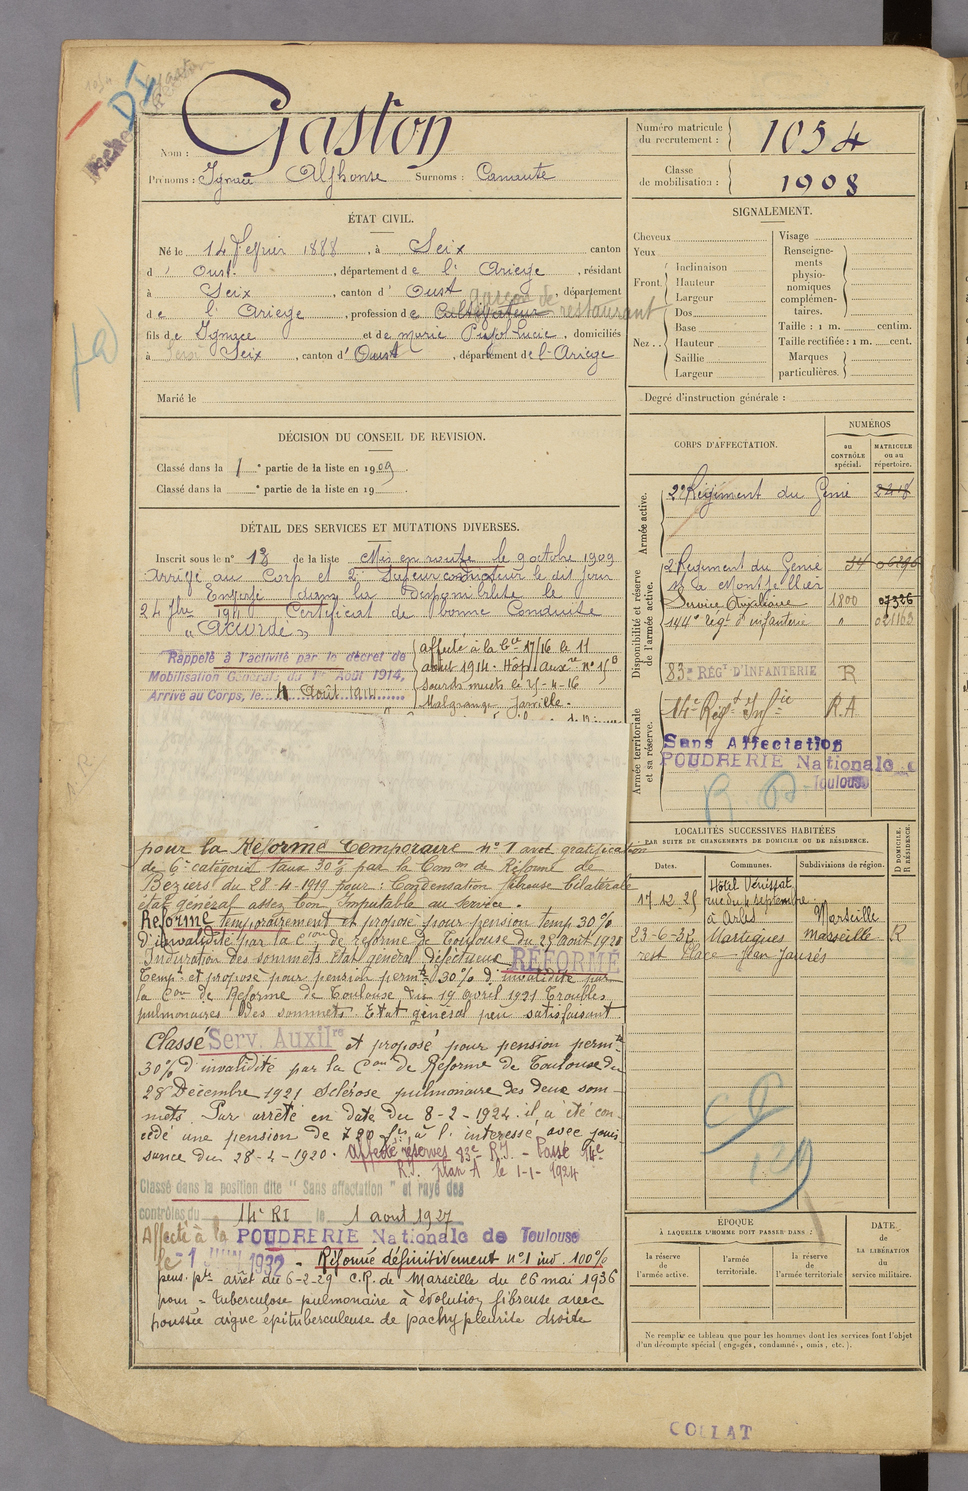 DI
Gaston
Nom :
Prénoms : Ignace Alphonse Surnoms : Camaute
Numéro matricule du recrutement : 1054
Classe de mobilisation : 1908
ÉTAT CIVIL.
Né le 14 Février 1888, à Seix canton
d' Oust, département de l'Ariège, résidant
à Seix, canton d' Oust, département
garçon de
de l'Ariège, profession de Cultivateur restaurant
fils de Ignace et de Marie Pujol Lucie, domiciliés
à Seix, canton d' Oust, département de l'Ariège
Marié le
SIGNALEMENT.
Cheveux
Yeux
Front Inclinaison
Hauteur
Largeur
Nez Dos
Base
Hauteur
Saillie
Largeur
Visage
Renseignements physionomiques complémentaires.
Taille : 1 m. centim.
Taille rectifiée : 1 m. cent.
Marques particulières.
Degré d'instruction générale :
DÉCISION DU CONSEIL DE REVISION.
Classé dans la 1e partie de la liste en 1909.
Classé dans la e partie de la liste en 19 .
DÉTAIL DES SERVICES ET MUTATIONS DIVERSES.
Inscrit sous le n° 18 de la liste Mis en route le 9 octobre 1909
Arrivé au Corp et 2e Sapeur conducteur le dit jour
Envoyé dans la Disponibilité le
24 7bre 1911 Certificat de bonne Conduite
"Accordé"
Rappelé à l'activité par le décret de
Mobilisation Générale du 1er Août 1914,
Arrivé au Corps, le 4 Août 1914
affecté à la Cie 17/16 le 11
août 1914. Hôpl Auxre n° 15B
sourds muets le 25-4-16
Malgrange Jarville.
pour la Réforme Temporaire n° 1 avec gratification
de 6e catégorie taux 30% par la Comon de Réforme de
Béziers du 28-4-1919 pour : Condensation fibreuse bilatérale
état général assez bon Imputable au service.
Réforme temporairement et proposé pour pension temp 30%
d'invalidité par la Cion de réforme de Toulouse du 25 Août 1920
Induration des sommets état général défectueux RÉFORMÉ
Tempt et proposé pour pension permte 30% d'invalidité par
la Con de Réforme de Toulouse du 19 avril 1921 Troubles
pulmonaires des sommets. Etat général peu satisfaisant
Classé Serv. Auxilre et proposé pour pension permte
30% d'invalidité par la Con de Réforme de Toulouse du
28 Décembre 1921 Sclérose pulmonaire des deux som-
mets. Par arrêté en date du 8-2-1924 il a été con-
cédé une pension de 720 frs à l'intéressé avec jouis
sance du 28-4-1920. Affecté réserves 83e R.I. - Passé 14e
R.I. plan A le 1-1-1924
Classé dans la position dite "Sans affectation" et rayé des
contrôles du 14e RI le 1 aout 1927
Affecté à la POUDRERIE Nationale de Toulouse
le 1 JUIN 1932 - Réformé définitivement n° 1 inv. 100%
pens. pte arrêt du 6-2-29 C.R. de Marseille du 26 mai 1936
pour = Tuberculose pulmonaire à évolution fibreuse avec
poussée aigue épituberculeuse de pachypleurite droite
CORPS D'AFFECTATION.
NUMÉROS
au CONTRÔLE spécial.
MATRICULE ou au répertoire.
Armée active.
2e Régiment du Génie 2248
Disponibilité et réserve de l'armée active.
2e Régiment du Génie
à Montpellier
Service Auxiliaire 1800 07326
144e régt d'infanterie " 021163
83e RÉGT D'INFANTERIE R
Armée territoriale et sa réserve.
14e Régt Infie R.A
Sans Affectation
POUDRERIE Nationale
Toulouse
LOCALITÉS SUCCESSIVES HABITÉES
PAR SUITE DE CHANGEMENTS DE DOMICILE OU DE RÉSIDENCE.
D DOMICILE. R RÉSIDENCE.
Dates. Communes. Subdivisions de région.
17.12.25 Hôtel Vénissat rue du 4 septembre à Arles Marseille
23-6-32 Martigues Marseille R
rest Place Jean Jaurès
ÉPOQUE
À LAQUELLE L'HOMME DOIT PASSER DANS :
la réserve de l'armée active.
l'armée territoriale.
la réserve de l'armée territoriale
DATE de LA LIBÉRATION du service militaire.
Ne remplir ce tableau que pour les hommes dont les services font l'objet
d'un décompte spécial (engagés, condamnés, omis, etc.).
COLLAT